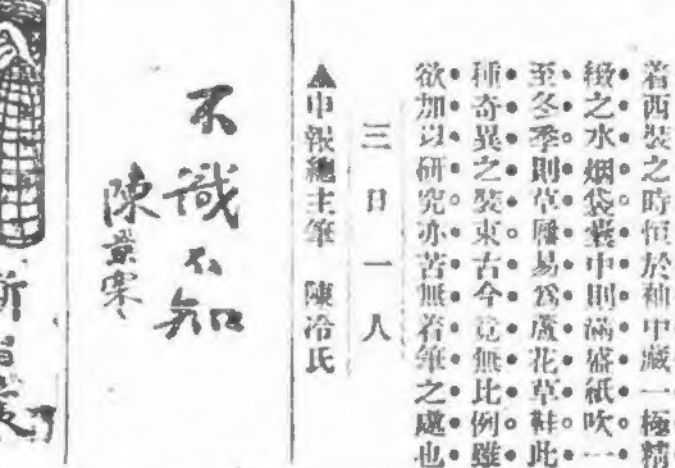 着西裝之時恒於袖中藏一極精
緻之水烟袋囊中則滿盛紙吹一
至冬季則草履易爲蘆花草鞋此
種奇異之裝束古今竟無比例雖
欲加以研究亦苦無着筆之處也
三日一人
▲申報總主筆 陳冷氏
不識不知
陳景寒